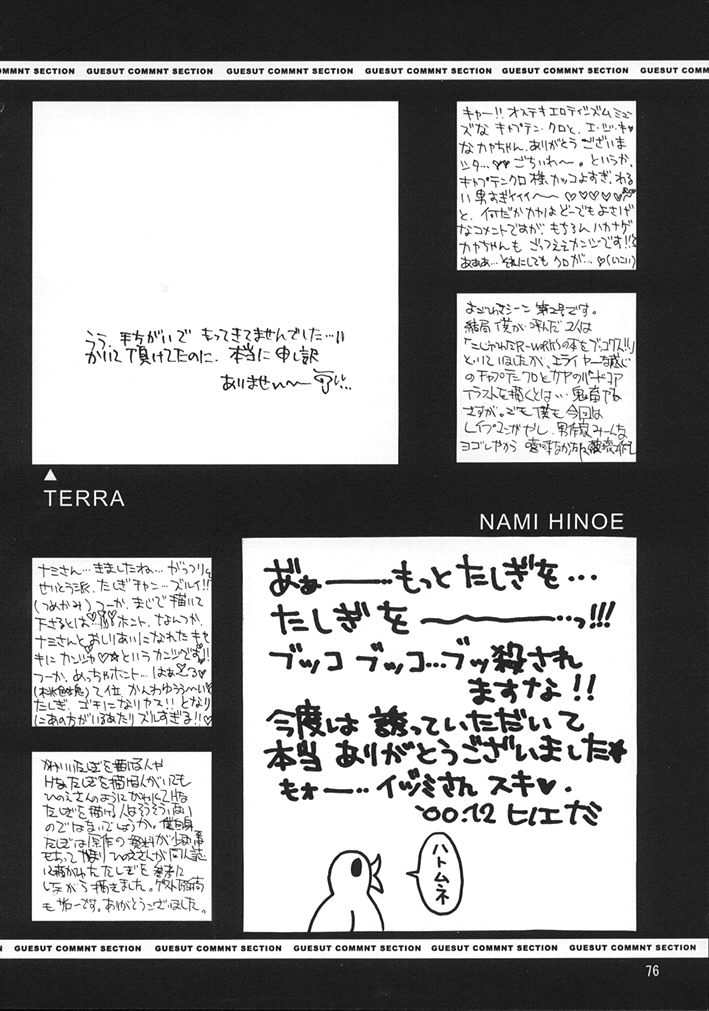 COMMNT SECTION GUESUT COMMNT SECTION GUESUT COMMNT SECTION GUESUT COMMNT SECTION GUESUT COMMNT SECTION GUESUT COMM
うう、手ちがいで もってきてませんでした…!!
かいて頂けてたのに、本当に申し訳
ありませぬ〜
TERRA
キャー!! オステキエロティシズムミュー
ズな キャプテン・クロと、エ・ジ・キ♥
なカヤちゃん、ありがとう ございま
シタ…♥♥ ごちいわ〜。というか、
キャプテンクロ様 カッコよすぎ、わる
い男すぎイイイ〜〜♡♡♡♡♡
と、何だかカヤはどーでもよさげ
なコメントですが、もちろんハカナゲ
カヤちゃんも ごっつええカンジです!!と
あああ… それにしても クロが… ♡(いこい)
よごれてシーン 第2号です。
結局 僕が 呼んだ 2人は
といていましたが、エライヤーな感じ
のキャプテンクロとカヤのハードコア
イラストを描くとは… 鬼畜やね
さすが。でも僕も今回は
NAMI HINOE
ナミさん… きましたね… がっつり
せいとう派、たしぎチャン… ズルイ!!
(つめかみ) つーか、まじで描いて
下さるとは… ホント、なんつか、
ナミさんと おしりあいになれた キセ
キに カンシャ♡☆ というカンジです!!
つーか、めっちゃホント… はぁ〜る
て位 かんわゆうぅ〜い
たしぎ、ゴチになりヤス!! となり
にあの方がいるあたり ズルすぎる!!♡
かわいいたしぎを描ける人や
Hなたしぎを描ける人がいても
ひのえさんのようにかわいくてHな
たしぎを描ける人はそうそういない
のではないでしょうか。僕自身
たしぎは原作の資料が
やはり ひのえさんが同人誌
に描かれたたしぎを参考に
しながら描きました。ゲスト原稿
ありがとうございました。
あ゛ぁ———…もっと たしぎを…
たしぎを 〜〜〜…っ!!!
ブッコ ブッコ…ブッ殺され
ますな!!
今度は 誘っていただいて
本当 ありがとうございました★
もォー… イヅミさん スキ♥.
'00.12 ヒノエナミ
ハトムネ
N GUESUT COMMNT SECTION GUESUT COMMNT SECTION GUESUT COMMNT SECTION GUESUT COMMNT SECTION GUESUT COMMNT SECTION
76